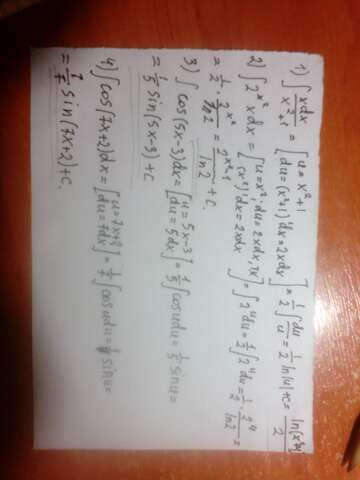 1) ∫ xdx/x²+1 = [u = x²+1 du = (x²+1)'dx = 2xdx] = 1/2 ∫ du/u = 1/2 ln|u|+c = ln(x²+1)/2
2) ∫ 2^x² x dx = [u = x²; du = 2xdx, (x²)'dx = 2xdx] = ∫ 2^u du = 1/2 ∫ 2^u du = 1/2 · 2^u/ln2 =
= 1/2 · 2^x²/ln2 = 2^x²-1/ln2 + c.
3) ∫ cos(5x-3)dx = [u = 5x-3 du = 5dx] = 1/5 ∫ cosudu = 1/5 sinu =
= 1/5 sin(5x-3)+c
4) ∫ cos(7x+2)dx = [u = 7x+2 du = 7dx] = 1/7 ∫ cosudu = 1/7 sinu =
= 1/7 sin(7x+2)+c.